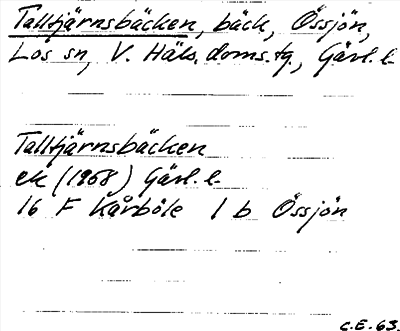 Talltjärnsbäcken, bäck, Össjön,
Los sn, V. Häls. doms.tg., Gävl. l.
Talltjärnsbäcken
ek (1968) Gävl. l.
16 F Kårböle 1 b Össjön
C.E. 63.